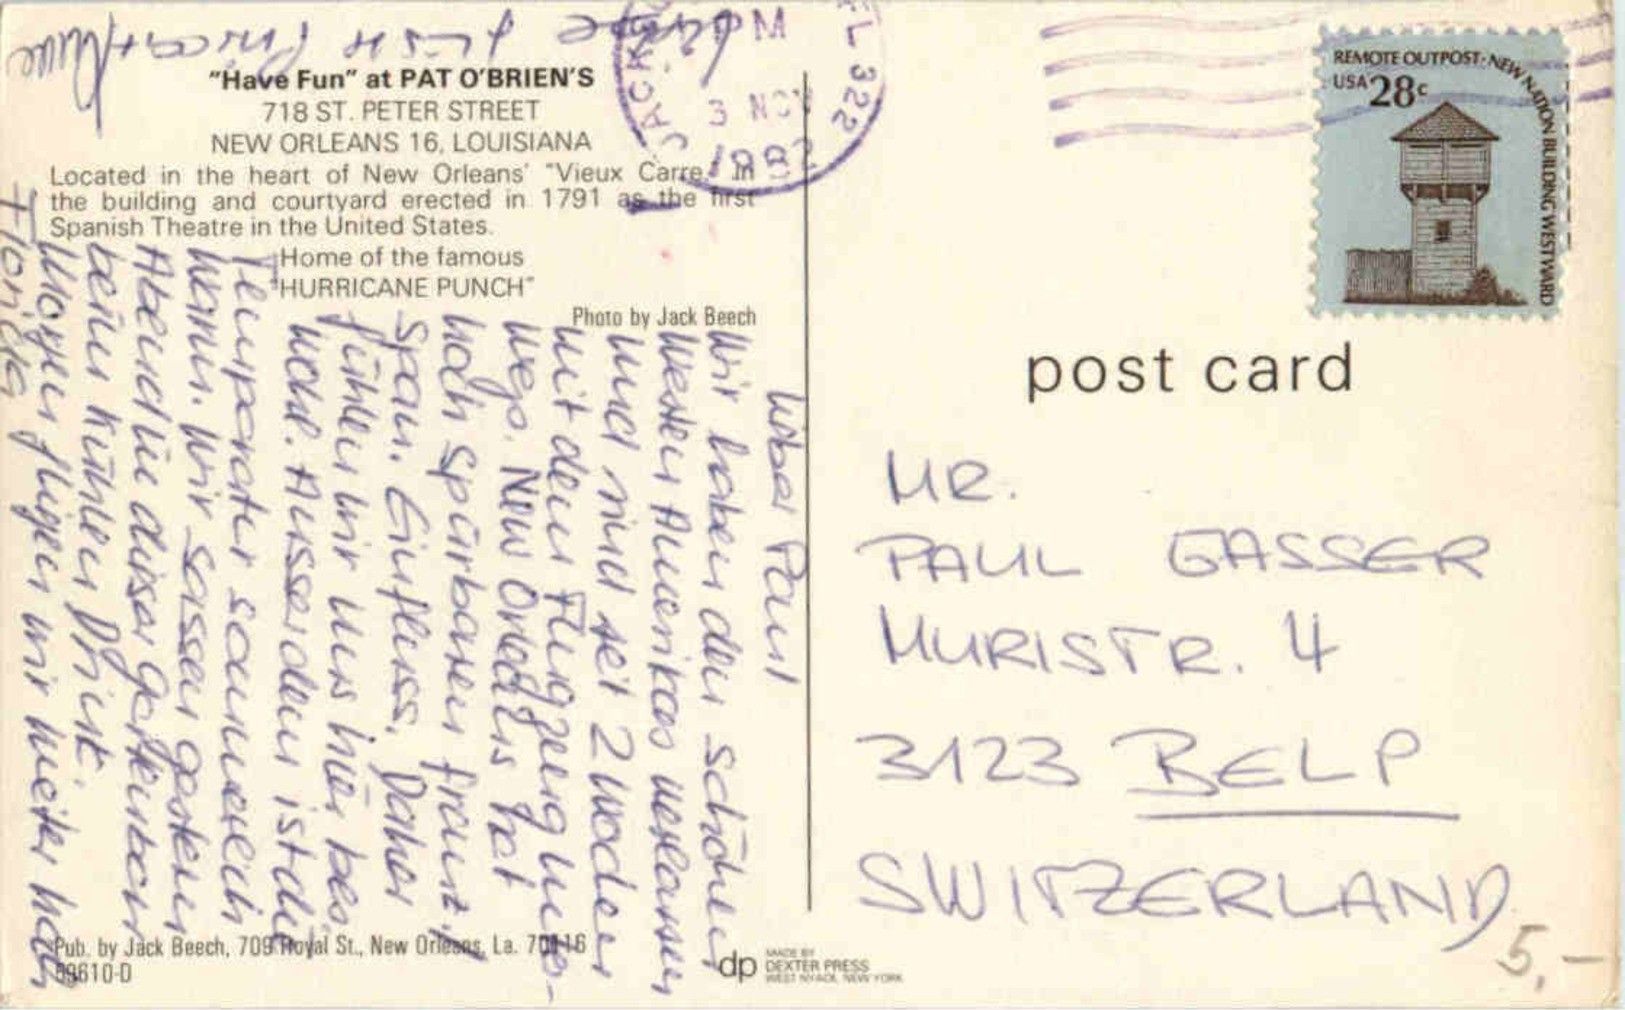 "Have Fun" at PAT O'BRIEN'S
718 ST. PETER STREET
NEW ORLEANS 16, LOUISIANA
Located in the heart of New Orleans' "Vieux Carre." In
the building and courtyard erected in 1791 as the first
Spanish Theatre in the United States.
Home of the famous
"HURRICANE PUNCH"
Photo by Jack Beech
Lieber Paul
Wir haben den schönen
Westen Amerikas verlassen
und sind seit 2 Wochen
mit dem Flugzeug unter-
wegs. New Orleans hat
noch spürbaren französ.
span. Einfluss. Daher
fühlen wir uns hier bes.
wohl. Ausserdem ist die
Temperatur sommerlich
warm. Wir sassen gestern
Abend in dieser Gartenbar
beim kühlen Drink.
Morgen fliegen wir weiter nach
Florida
JACK FL 322
PM
3 NOV
198
REMOTE OUTPOST: NEW NATION BUILDING WESTWARD
USA 28c
post card
MR.
PAUL GASSER
MURISTR. 4
3123 BELP
SWITZERLAND
5,-
Pub. by Jack Beech, 709 Royal St., New Orleans, La. 70116
69610-D
dp MADE BY
DEXTER PRESS
WEST NYACK, NEW YORK